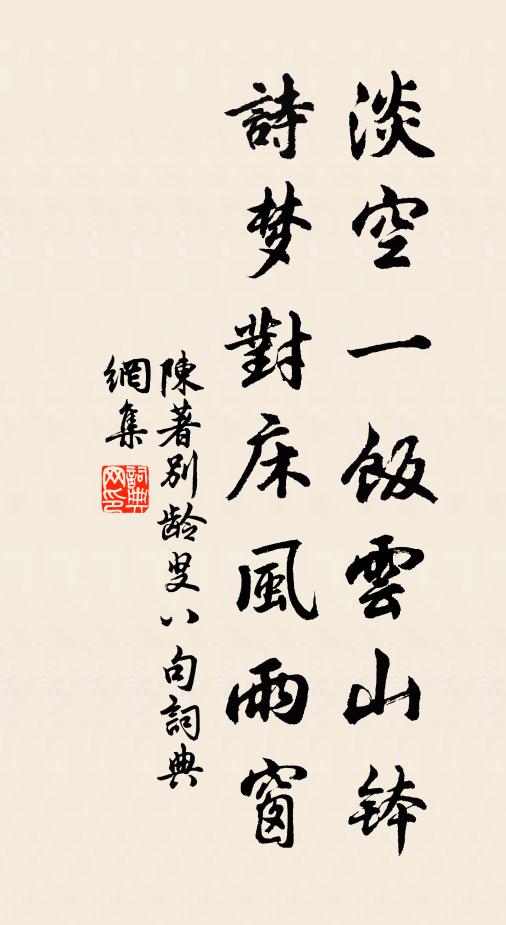 淡空一飯雲山鉢
詩梦對床風雨窗
陳著別龄叟八句詞典
網集
詞典网印